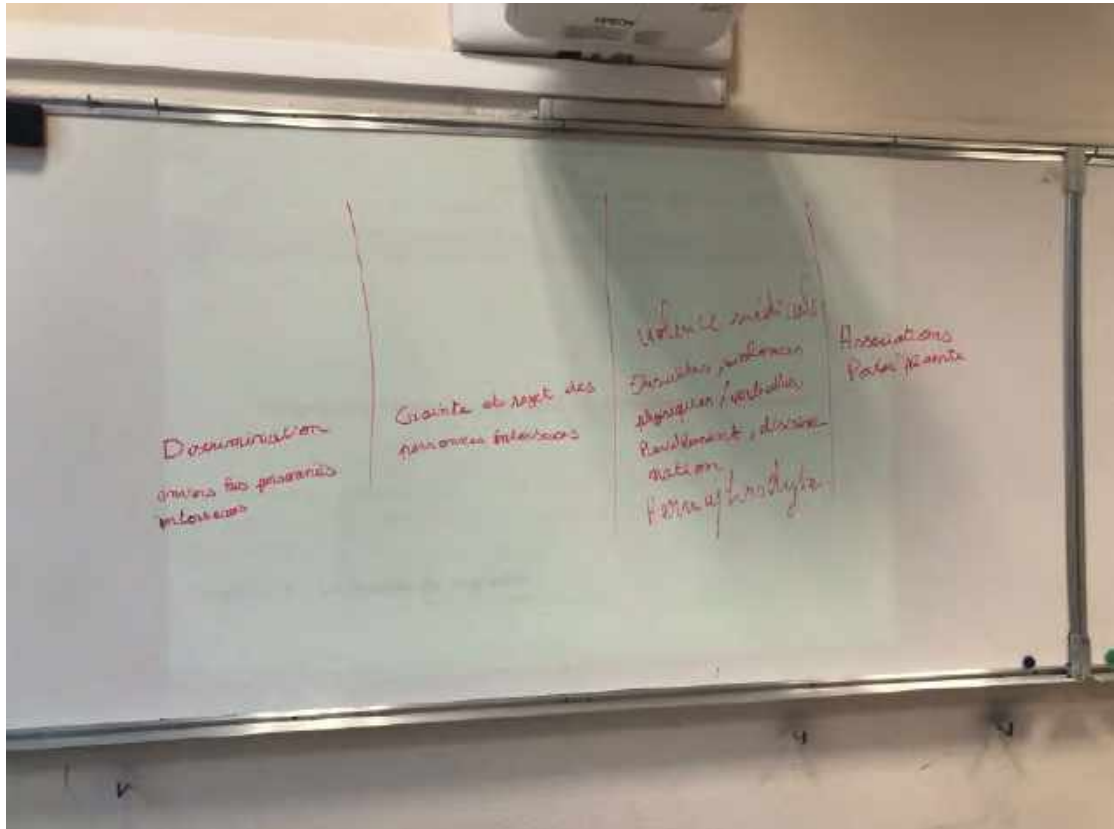 EPSON
Discrimination
envers les personnes
intersexes
Crainte et rejet des
personnes intersexes
violence médicale
Insultes, violences
physiques / verbales
Harcèlement, discrimi-
nation
Hermaphrodyte
Associations
Parler